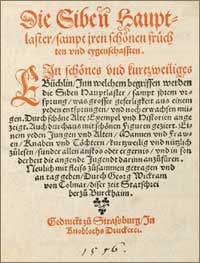 Die Siben Haupt-
laster/ sampt jren schönen früch
ten vnd eygenschafften.
EIn schönes vnd kurtzweiliges
Büchlin/ Inn welchem begriffen werden
die Siben Hauptlaster/ sampt jhrem vr-
sprung/ was grosser geferligkeit auß einem
yeden entsprungen/ vnd noch erwachsen mü-
gen. Durch schöne Alte Exempel vnd Historien ange
zeigt. Auch durchauß mit schönen Figuren geziert. Ei-
nem yeden/ Jungen vnd Alten/ Mannen vnd Frawen/
Knaben vnd Töchtern/ kurtzweilig vnd nützlich
zůlesen/ sunder allen anstoß oder ergernis/ vnd in son
derheit die angende Jugendt darinn anzůfüren.
Neulich mit fleiß zůsammen getragen vnd
an tag geben/ Durch Georg Wickram
von Colmar/ diser zeit Statschrei
ber zů Burckhaim.
Gedruckt zů Straßburg/ In
Knoblochs Druckerei.
1556.